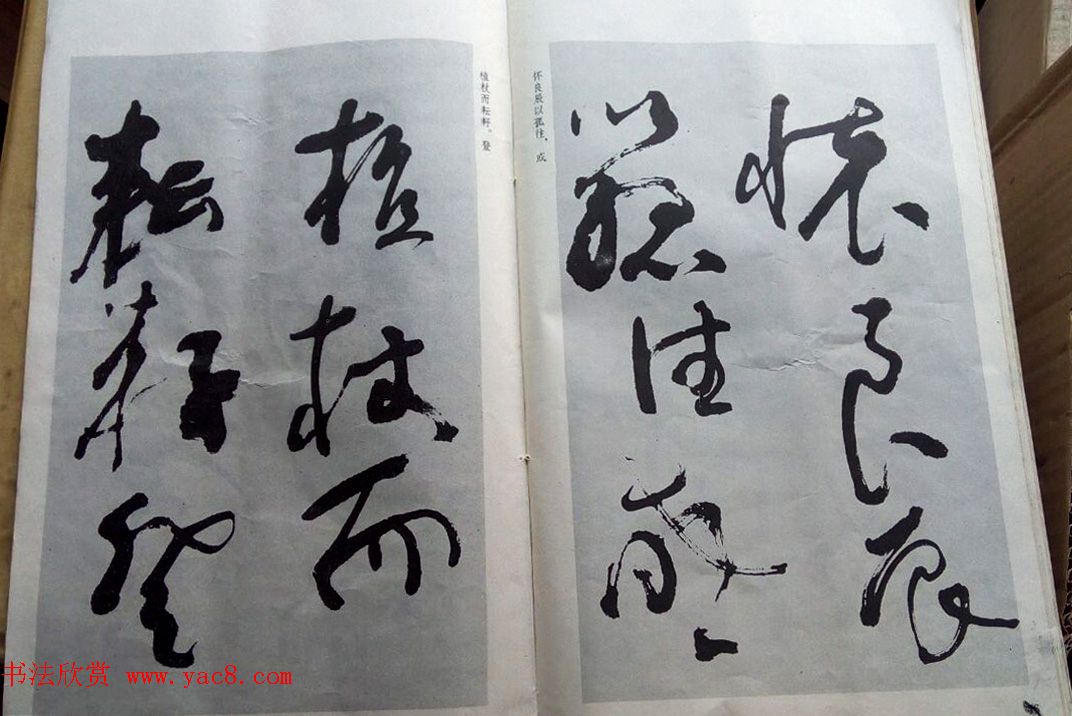 懷良辰
以孤往或
怀良辰以孤往,或
植杖而耘耔。登
植杖而
耘耔登
书法欣赏 www.yac8.com